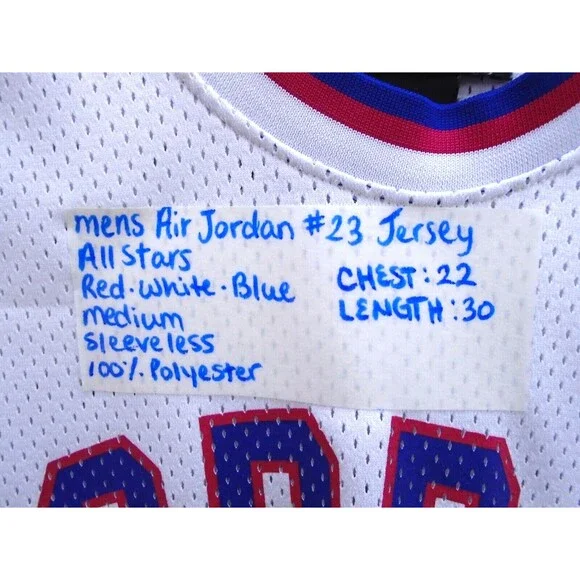 mens Air Jordan #23 Jersey
All Stars
Red. White. Blue
medium
sleeveless
100% Polyester
CHEST: 22
LENGTH: 30